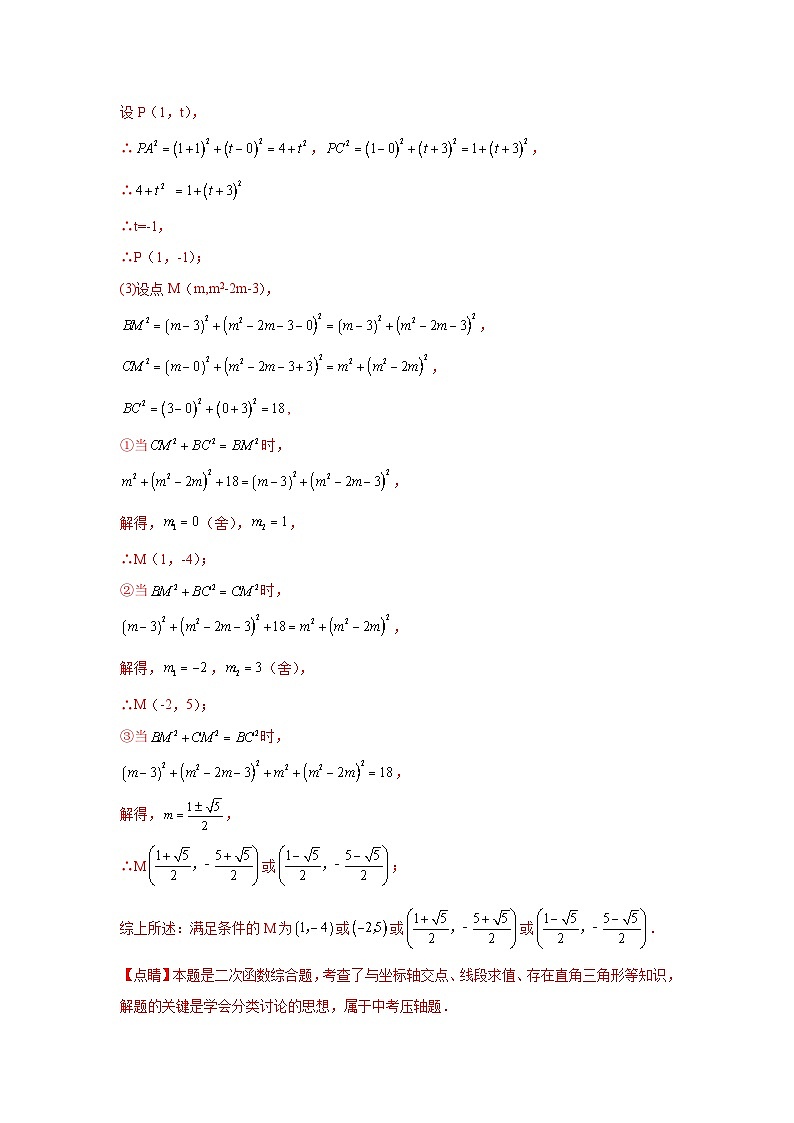 设 P（1，t），
∴PA²=(1+1)²+(t−0)²=4+t²，PC²=(1−0)²+(t+3)²=1+(t+3)²，
∴4+t² =1+(t+3)²
∴t=-1，
∴P（1，-1）；
(3)设点 M（m,m²-2m-3），
BM²=(m−3)²+(m²−2m−3−0)²=(m−3)²+(m²−2m−3)²，
CM²=(m−0)²+(m²−2m−3+3)²=m²+(m²−2m)²，
BC²=(3−0)²+(0+3)²=18,
①当CM²+BC²=BM²时，
m²+(m²−2m)²+18=(m−3)²+(m²−2m−3)²，
解得，m₁=0（舍），m₂=1，
∴M（1，-4）；
②当BM²+BC²=CM²时，
(m−3)²+(m²−2m−3)²+18=m²+(m²−2m)²，
解得，m₁=−2，m₂=3（舍），
∴M（-2，5）；
③当BM²+CM²=BC²时，
(m−3)²+(m²−2m−3)²+m²+(m²−2m)²=18，
解得，m=(1±√5)/2，
∴M((1+√5)/2，-(5+√5)/2)或((1−√5)/2，-(5−√5)/2)；
综上所述：满足条件的 M 为(1,−4)或(−2,5)或((1+√5)/2，-(5+√5)/2)或((1−√5)/2，-(5−√5)/2)．
【点睛】本题是二次函数综合题，考查了与坐标轴交点、线段求值、存在直角三角形等知识，
解题的关键是学会分类讨论的思想，属于中考压轴题．